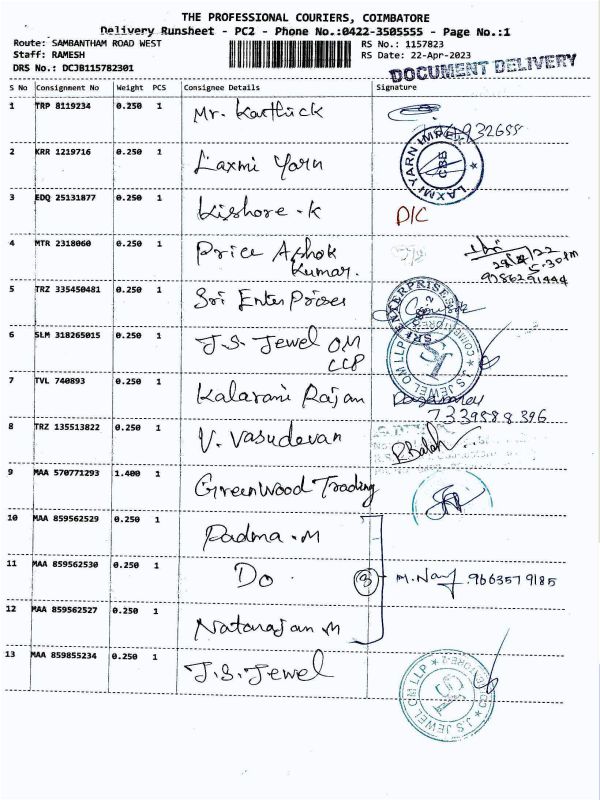 THE PROFESSIONAL COURIERS, COIMBATORE
Delivery Runsheet - PC2 - Phone No.:0422-3505555 - Page No.:1
Route: SAMBANTHAM ROAD WEST
RS No.: 1157823
Staff: RAMESH
RS Date: 22-Apr-2023
DRS No.: DCJB115782301
DOCUMENT DELIVERY
S No Consignment No Weight PCS Consignee Details Signature
1 TRP 8119234 0.250 1 Mr. Karthick
2 KRR 1219716 0.250 1 Laxmi Yarn
LAXMI YARN IMPEX CBE
3 EDQ 25131877 0.250 1 Kishore - K D/C
4 MTR 2318060 0.250 1 Price Ashok
Kumar.
5.30 PM
9786291444
5 TRZ 335450481 0.250 1 Sri Enter Prises
SRI ENTERPRISES
6 SLM 318265015 0.250 1 J.S. Jewel OM
LLP
J.S JEWEL OM LLP
7 TVL 740893 0.250 1 Kalarani Rajan
7339588396
8 TRZ 135513822 0.250 1 V. Vasudevan
9 MAA 570771293 1.400 1 Greenwood Trading
10 MAA 859562529 0.250 1 Padma - M
11 MAA 859562530 0.250 1 Do 3 9663579185
12 MAA 859562527 0.250 1 Natarajan M
13 MAA 859855234 0.250 1 J.S. Jewel
J.S JEWEL OM LLP